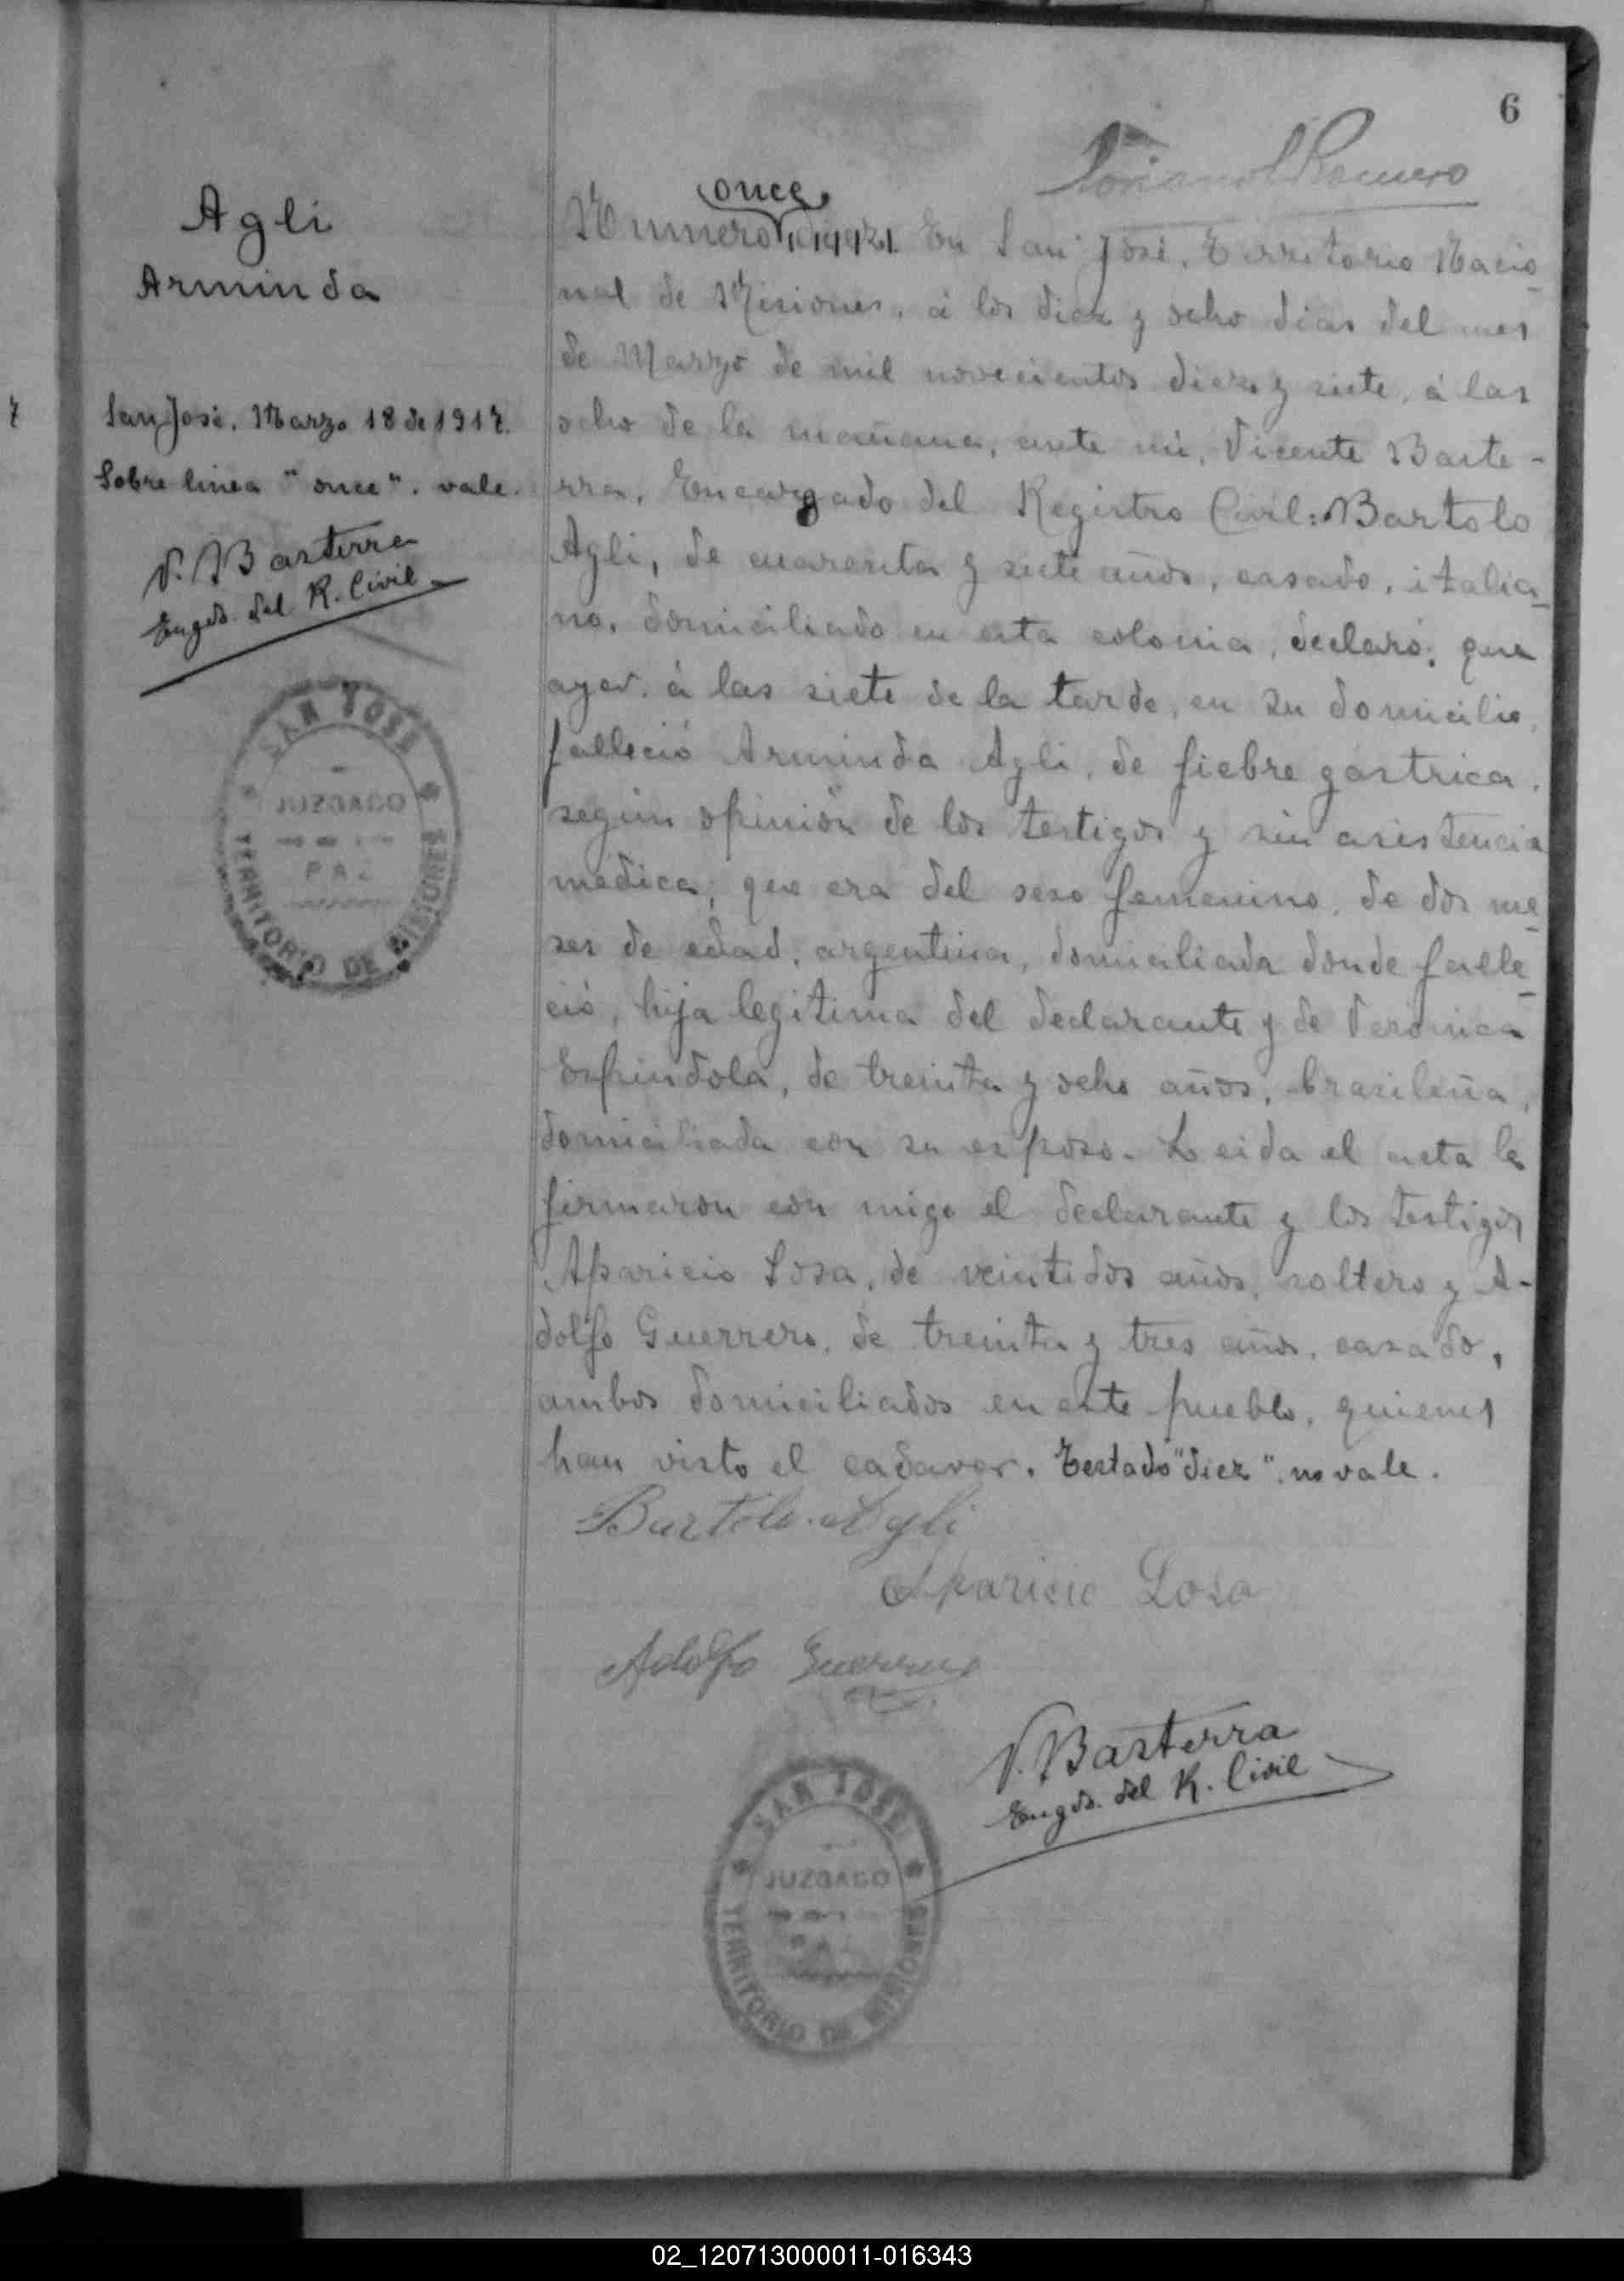 6
Romero
Agli
Arminda
San José, Marzo 18 de 1917.
Sobre linea "once". vale.
V. Basterra
Engdo. del R. Civil
SAN JOSE
JUZGADO
PAZ
TERRITORIO DE MISIONES
once
Numero En San José, Territorio Nacio
nal de Misiones, á los diez y ocho dias del mes
de Marzo de mil novecientos diez y siete, á las
ocho de la mañana, ante mi, Vicente Baste-
rra, Encargado del Registro Civil: Bartolo
Agli, de cuarenta y siete años, casado, italia_
no, domiciliado en esta colonia, declaró: que
ayer, á las siete de la tarde, en su domicilio,
falleció Arminda Agli, de fiebre gastrica,
según opinión de los testigos y sin asistencia
medica; que era del sexo femenino, de dos me_
ses de edad, argentina, domiciliada donde falle_
ció, hija legitima del declarante y de Veronica
Espindola, de treinta y ocho años, brasileña,
domiciliada con su esposo. Leida el acta la
firmaron con migo el declarante y los testigos
Aparicio Sosa, de veintidos años, soltero y A-
dolfo Guerrero, de treinta y tres años, casado,
ambos domiciliados en este pueblo, quienes
han visto el cadaver. Testado "diez". no vale.
Bartolo Agli
Aparicio Sosa
Adolfo Guerrero
V. Basterra
Engdo. del R. Civil
SAN JOSE
JUZGADO
TERRITORIO DE MISIONES
02_120713000011-016343